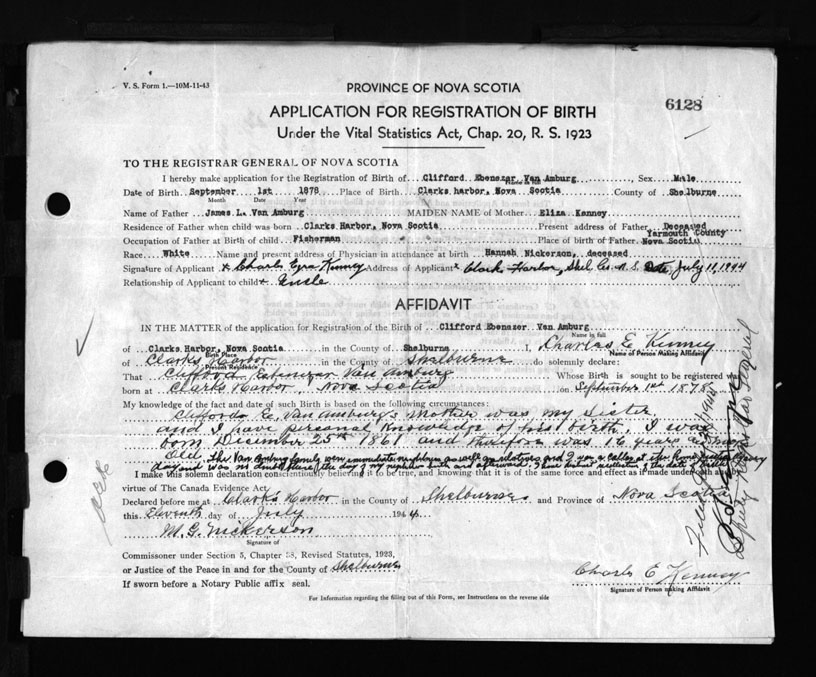 V. S. Form 1.—10M-11-43
PROVINCE OF NOVA SCOTIA
6128
APPLICATION FOR REGISTRATION OF BIRTH
Under the Vital Statistics Act, Chap. 20, R. S. 1923
TO THE REGISTRAR GENERAL OF NOVA SCOTIA
I hereby make application for the Registration of Birth of Clifford Ebenezar Van Amburg, Sex Male
Name in full
Date of Birth September 1st 1878 Place of Birth Clarks harbor, Nova Scotia County of Shelburne
Month Date Year
Name of Father James L. Van Amburg MAIDEN NAME of Mother Eliza Kenney
Residence of Father when child was born Clarks Harbor, Nova Scotia Present address of Father Deceased
Occupation of Father at Birth of child Fisherman Place of birth of Father Yarmouth County Nova Scotia
Race White Name and present address of Physician in attendance at birth Hannah Nickerson, deceased
Signature of Applicant x Charles Ezra Kenney Address of Applicant x Clark Harbor, Shel. Co. N. S. Date July 11, 1944
Relationship of Applicant to child x Uncle
AFFIDAVIT
IN THE MATTER of the application for Registration of the Birth of Clifford Ebenezer Van Amburg
Name in full
of Clarks Harbor, Nova Scotia in the County of Shelburne I, Charles E Kenney
Birth Place Name of Person Making Affidavit
of Clarks Harbor in the County of Shelburne do solemnly declare:
Present Residence
That Clifford Ebenezer Van Amburg Whose Birth is sought to be registered was
born at Clarks Harbor, Nova Scotia on September 1st 1878
My knowledge of the fact and date of such Birth is based on the following circumstances:
Clifford E. Van Amburg's mother was my sister
and I have personal knowledge of his birth. I was
born December 25th 1861 and therefore was 16 years
old. The Van Amburg family were immediate neighbors as well as relatives and I was a caller at the home
day and was no doubt there the day of my nephew birth and afterward.
I make this solemn declaration conscientiously believing it to be true, and knowing that it is of the same force and effect as if made under oath
virtue of The Canada Evidence Act.
Declared before me at Clarks Harbor in the County of Shelburne and Province of Nova Scotia
this Eleventh day of July 1944
M. G. Nickerson
Signature of
Commissioner under Section 5, Chapter 38, Revised Statutes, 1923,
or Justice of the Peace in and for the County of Shelburne
If sworn before a Notary Public affix seal.
Charles E Kenney
Signature of Person making Affidavit
For Information regarding the filling out of this Form, see Instructions on the reverse side